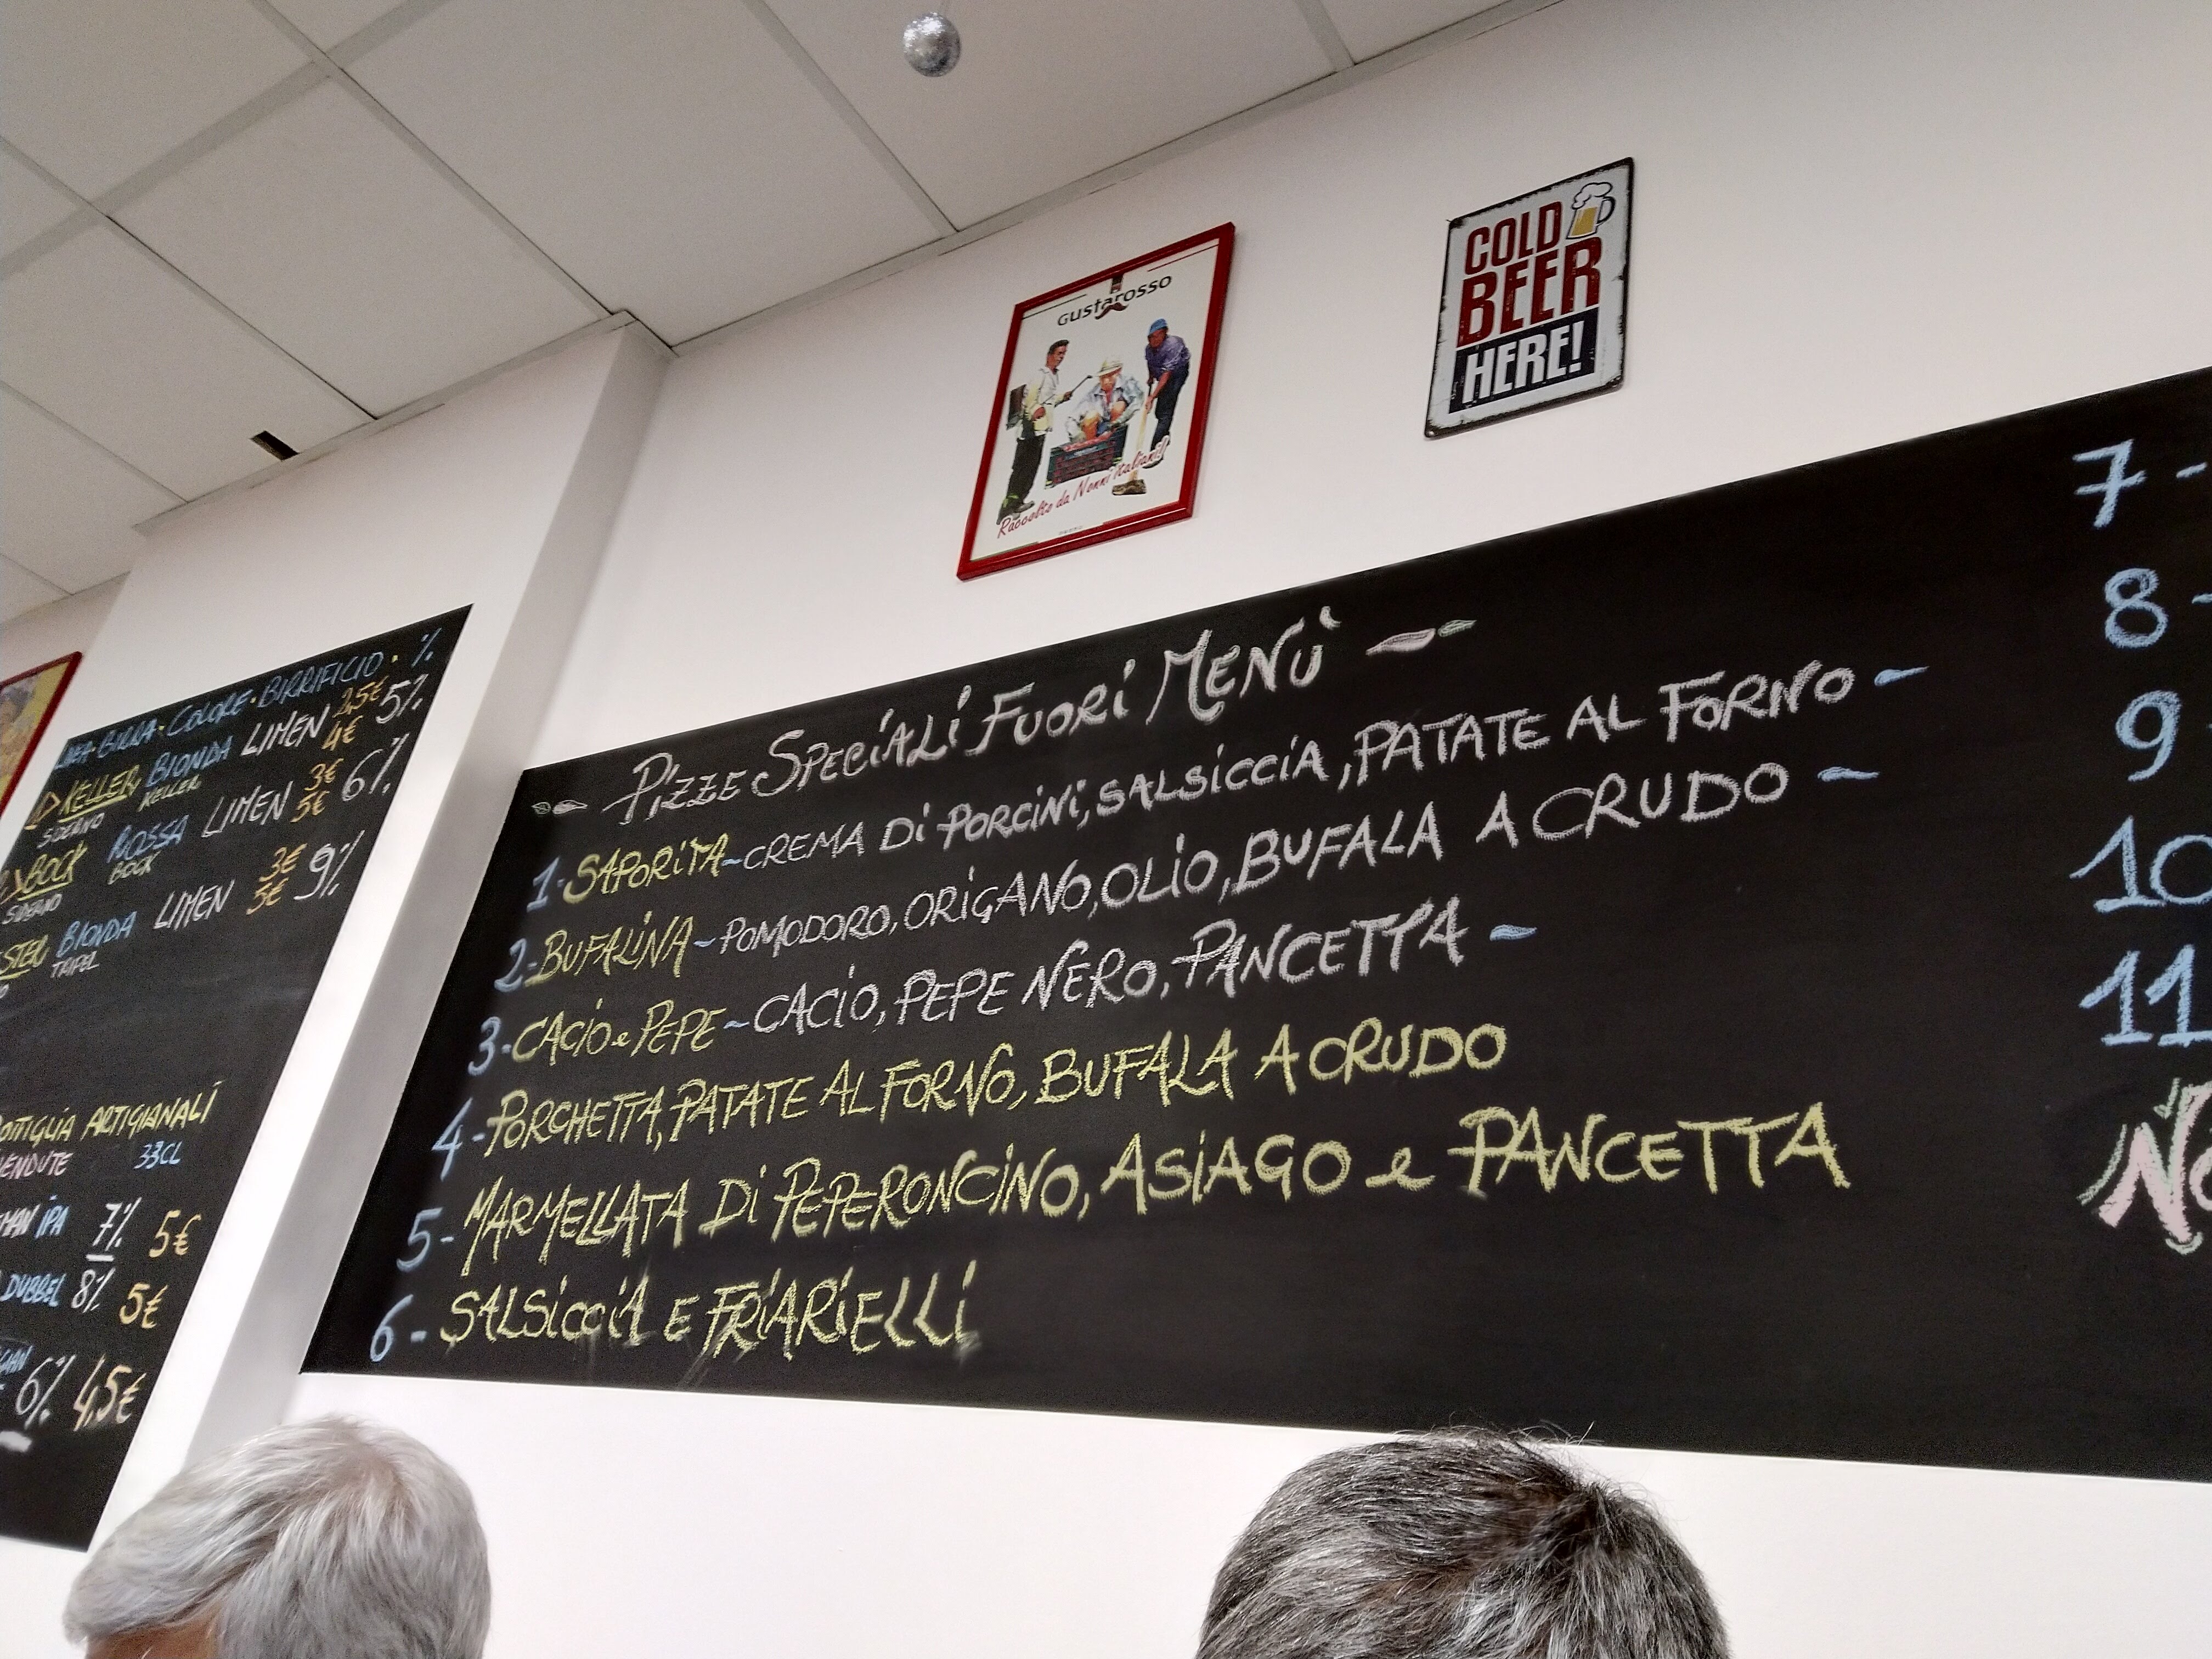 GUSTAROSSO
Raccolto da Nonni Italiani!
COLD
BEER
HERE!
BIRRA · COLORE · BIRRIFICIO · %
KELLER BIONDA LIMEN 2,5€ 5%
KELLER 4€
SIDERNO
BOCK ROSSA LIMEN 3€ 6%
BOCK 5€
SIDERNO
BIONDA LIMEN 3€ 9%
TRIPEL 5€
ARTIGIANALI
33CL
IPA 7% 5€
DUBBEL 8% 5€
6% 4,5€
PIZZE SPECIALI FUORI MENÙ
1-SAPORITA-CREMA DI PORCINI, SALSICCIA, PATATE AL FORNO-
2-BUFALINA-POMODORO, ORIGANO, OLIO, BUFALA A CRUDO-
3-CACIO e PEPE-CACIO, PEPE NERO, PANCETTA-
4-PORCHETTA, PATATE AL FORNO, BUFALA A CRUDO
5-MARMELLATA DI PEPERONCINO, ASIAGO e PANCETTA
6-SALSICCIA E FRIARIELLI
7-
8-
9
10
11